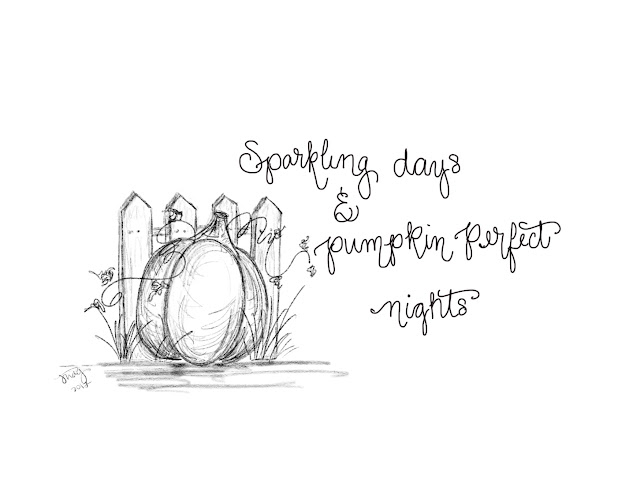 Sparkling days
&
pumpkin perfect
nights